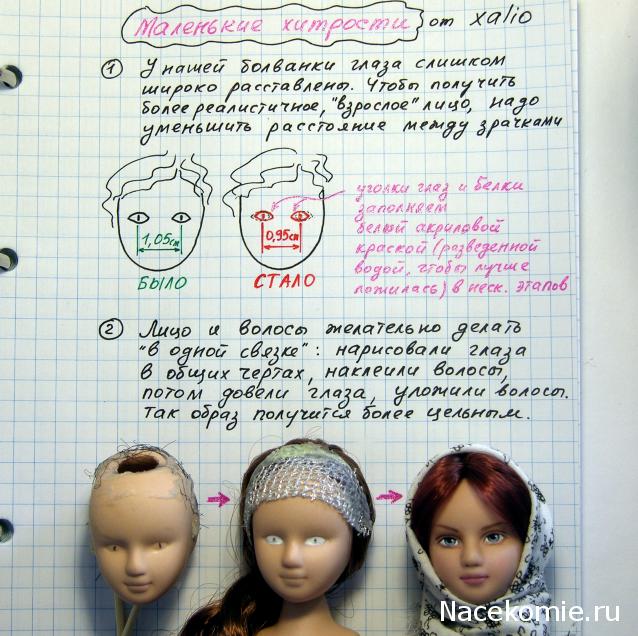 Маленькие хитрости от xalio
① У нашей болванки глаза слишком
широко расставлены. Чтобы получить
более реалистичное, "взрослое" лицо, надо
уменьшить расстояние между зрачками
уголки глаз и белки
заполняем
белой акриловой
краской (разведенной
водой, чтобы лучше
ложилась) в неск. этапов
1,05см
0,95см
БЫЛО
СТАЛО
② Лицо и волосы желательно делать
"в одной связке": нарисовали глаза
в общих чертах, наклеили волосы,
потом довели глаза, уложили волосы.
Так образ получится более цельным.
Nacekomie.ru